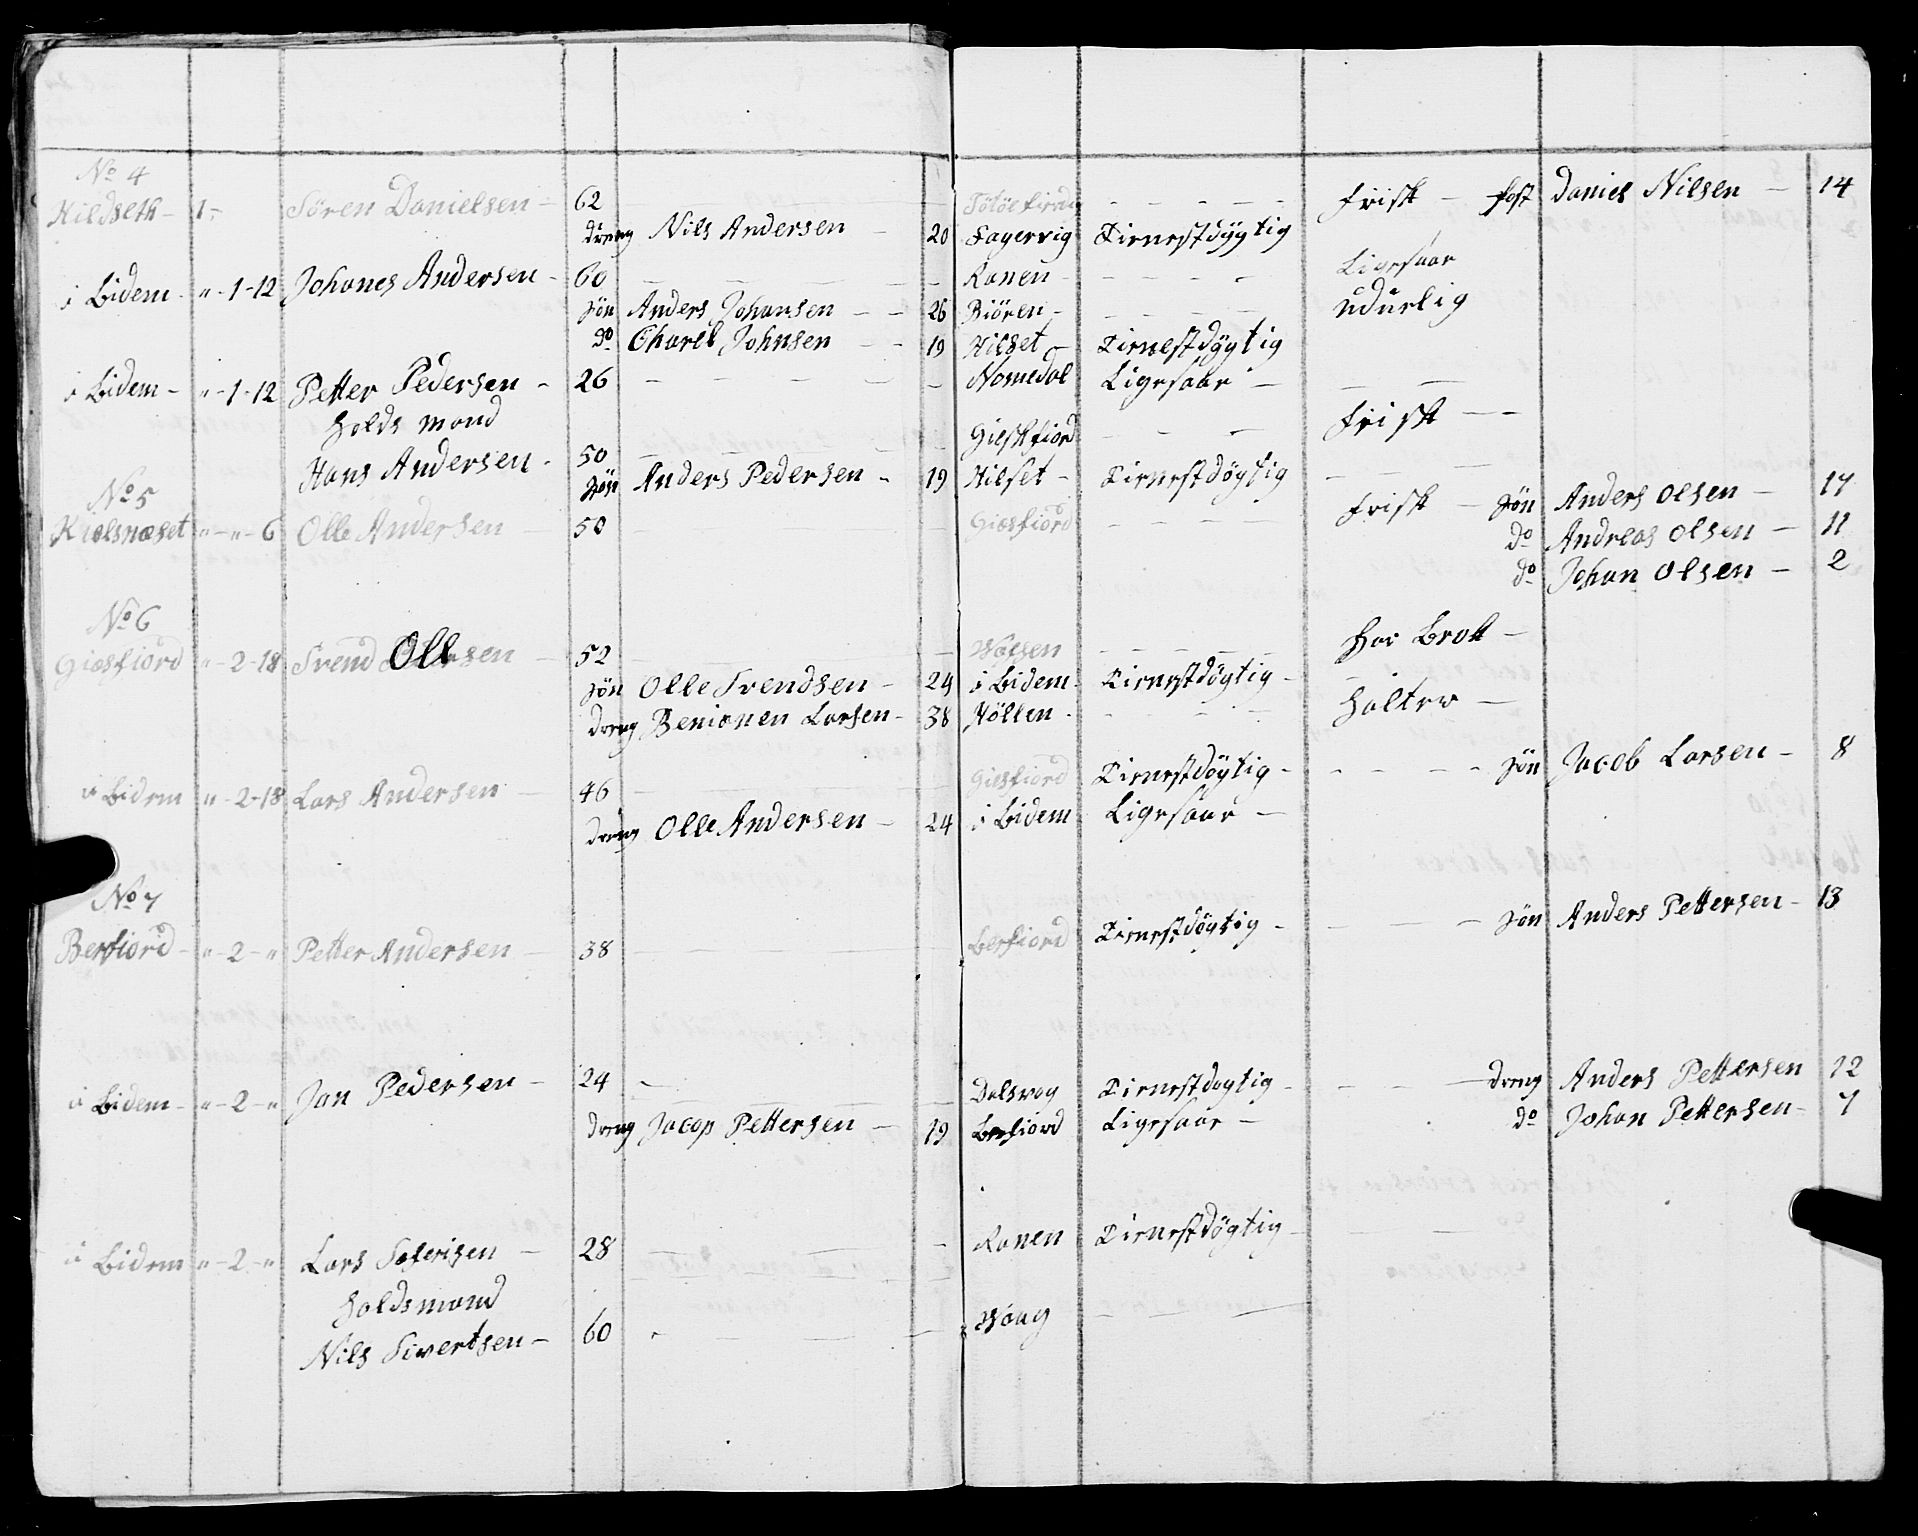 No 4
Hildseth - 1 - Sören Danielsen - 62 - Frisk - post Daniel Nilsen - 14
dreng Nils Andersen - 20 Fagervig Tienestdygtig
i Bidem - " - 1 - 12 Johanes Andersen - 60 - Ranen - Ligesaa
sön Anders Johansen - - 26 Biören - udurlig
do Charel Johnsen - - 19 Hilset - Tienestdygtig
i Bidem - " - 1 - 12 Petter Pedersen - 26 - Namedal Ligesaa -
Holds mand
Hans Andersen - 50 - Gieskfiord - Frisk - -
sön Anders Pedersen - 19 Hilset - Tienestdögtig
No 5
Kielsnæset " - " - 6 Olle Andersen - 50 - Giæsfiord - Frisk - sön Anders Olsen - 17
do Andreas Olsen - 11
do Johan Olsen - 2
No 6
Giæsfiord " - 2 - 18 Svend Ollersen - 52 - Wafsen - Har Brok -
sön Olle Svendsen - 24 i Bidem - Tienestdögtig -
dreng Benionen Larsen - 38 Höllen - Halter -
i Bidem " - 2 - 18 Lars Andersen - 46 - Giesfiord Tienestdögtig - sön Jacob Larsen - 8
dreng Olle Andersen - 24 i Bidem Ligesaa -
No 7
Berfiord - " - 2 - " Petter Andersen - 38 - Berfiord Tienestdögtig - sön Anders Pettersen - 13
i Bidem - " - 2 - " Jan Pedersen - 24 - Dalsvog Tienestdogtig - dreng Anders Pettersen 12
dreng Jacop Pettersen - 19 Berfiord Ligesaa - do Johan Pettersen - 7
i Bidem " - 2 - " Lars Saferisen - 28 - Ranen Tienestdögtig -
Holdsmand
Nils Sivertsen - 60 - Waag -